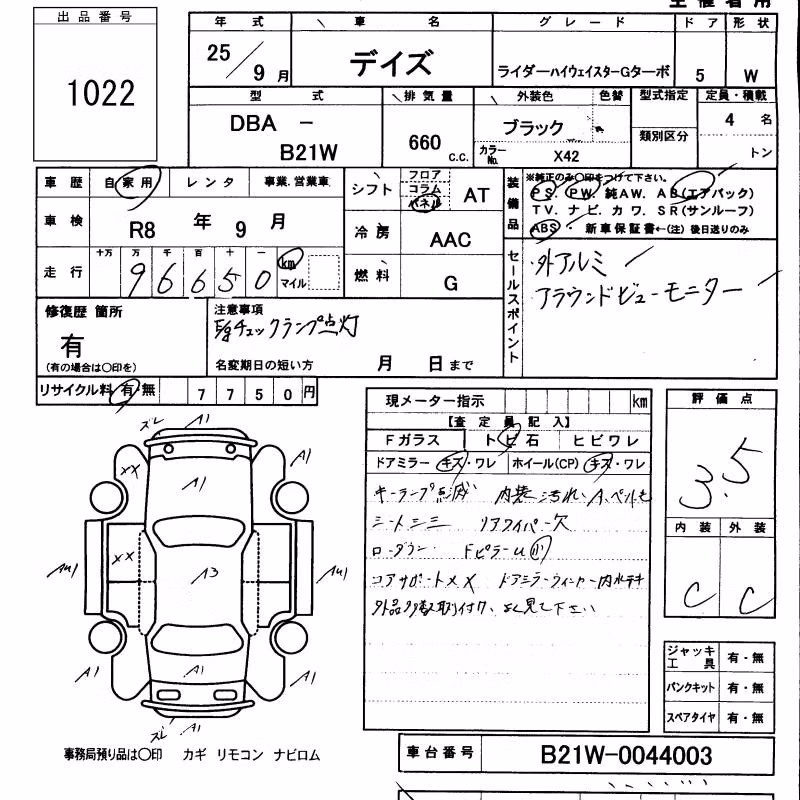 出品番号
1022
年式 車名 グレード ドア 形状
25/9月 デイズ ライダーハイウェイスターGターボ 5 W
型式 排気量 外装色 色替 型式指定 定員・積載
DBA - B21W 660 c.c. ブラック 類別区分 4名
カラーNo. X42 トン
車歴 自家用 レンタ 事業.営業車
シフト フロア コラム パネル AT
装備品 ※純正のみ〇印をつけて下さい。
PS. PW. 純AW. AB(エアバック)
TV. ナビ. カワ. SR(サンルーフ)
ABS ・ 新車保証書←(注) 後日送りのみ
車検 R8年9月
冷房 AAC
走行 十万 万 千 百 十 一
96650 km マイル
燃料 G
セールスポイント
外アルミ
アラウンドビューモニター
修復歴 箇所
有
(有の場合は〇印を)
注意事項
E/gチェックランプ点灯
名変期日の短い方 月 日まで
リサイクル料 有・無 7750円
現メーター指示 km
【査定員記入】
Fガラス トビ石 ヒビワレ
ドアミラー キズ・ワレ ホイール(CP) キズ・ワレ
キーランプ点滅 内装汚れ・
シートシミ リアワイパー欠
ローダウン・ Fピラーu
コアサポートXX ドアミラーウィンカー内水
外品多数取付け、よく見て下さい
評価点
3.5
内装 外装
C C
ズレ A1
XX A1 A1
XX A3
A1 A1 A1
ズレ A1
ジャッキ工具 有・無
パンクキット 有・無
スペアタイヤ 有・無
事務局預り品は〇印 カギ リモコン ナビロム
車台番号 B21W-0044003